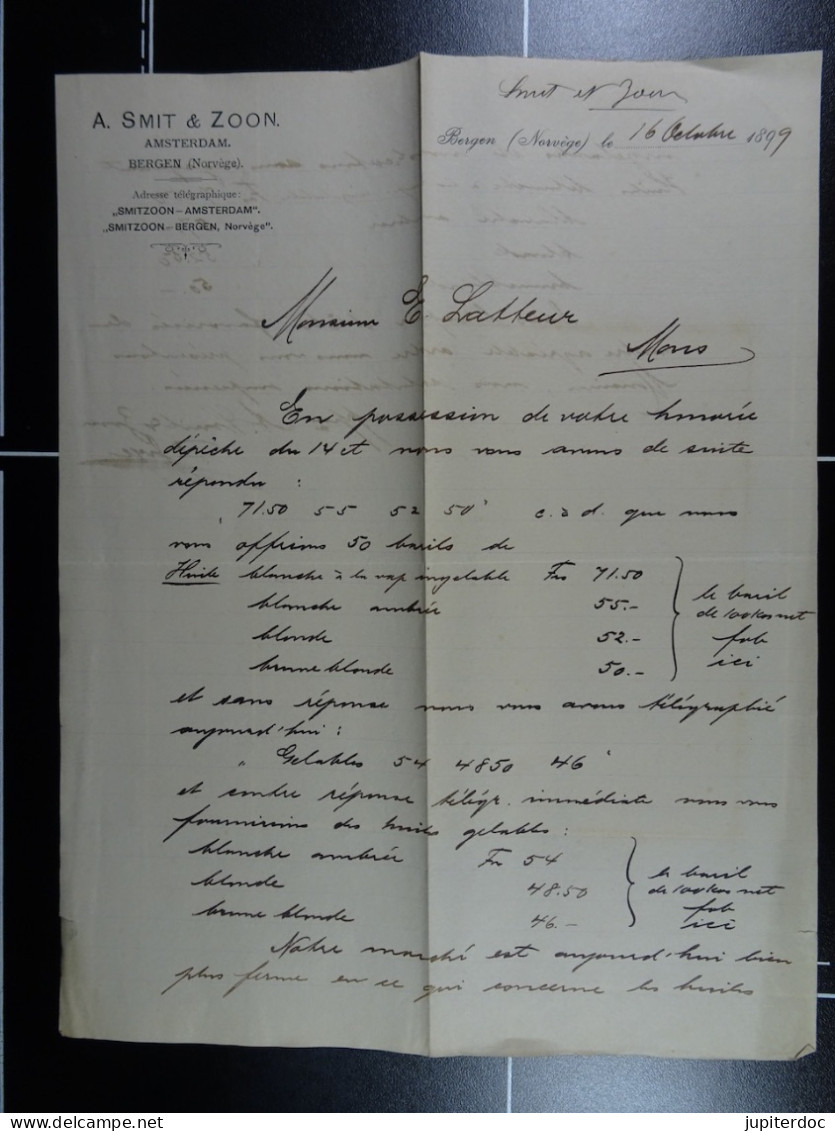 Smit et Zoon
A. SMIT & ZOON.
AMSTERDAM.
BERGEN (Norvège).
Adresse télégraphique:
„SMITZOON—AMSTERDAM".
„SMITZOON—BERGEN, Norvège".
Bergen (Norvège) le 16 Octobre 1899
Monsieur E Latteur
Mons
En possession de votre honorée
dépêche du 14 ct nous vous avons de suite
répondu :
" 71.50 55 52 50 " c. à d. que nous
vous offrions 50 barils de
Huile blanche à la vap ingelable Frs 71.50
blanche ambrée 55.-
blonde 52.-
brune blonde 50.-
le baril
de 100 kos net
fob
ici
et sans réponse nous vous avons télégraphié
aujourd'hui :
" Gelables 54 4850 46 "
et contre réponse télégr. immédiate nous vous
fournirions des huiles gelables :
blanche ambrée Frs 54
blonde 48.50
brune blonde 46.-
le baril
de 100 kos net
fob
ici
Notre marché est aujourd'hui bien
plus ferme en ce qui concerne les huiles
jupiterdoc
www.delcampe.net